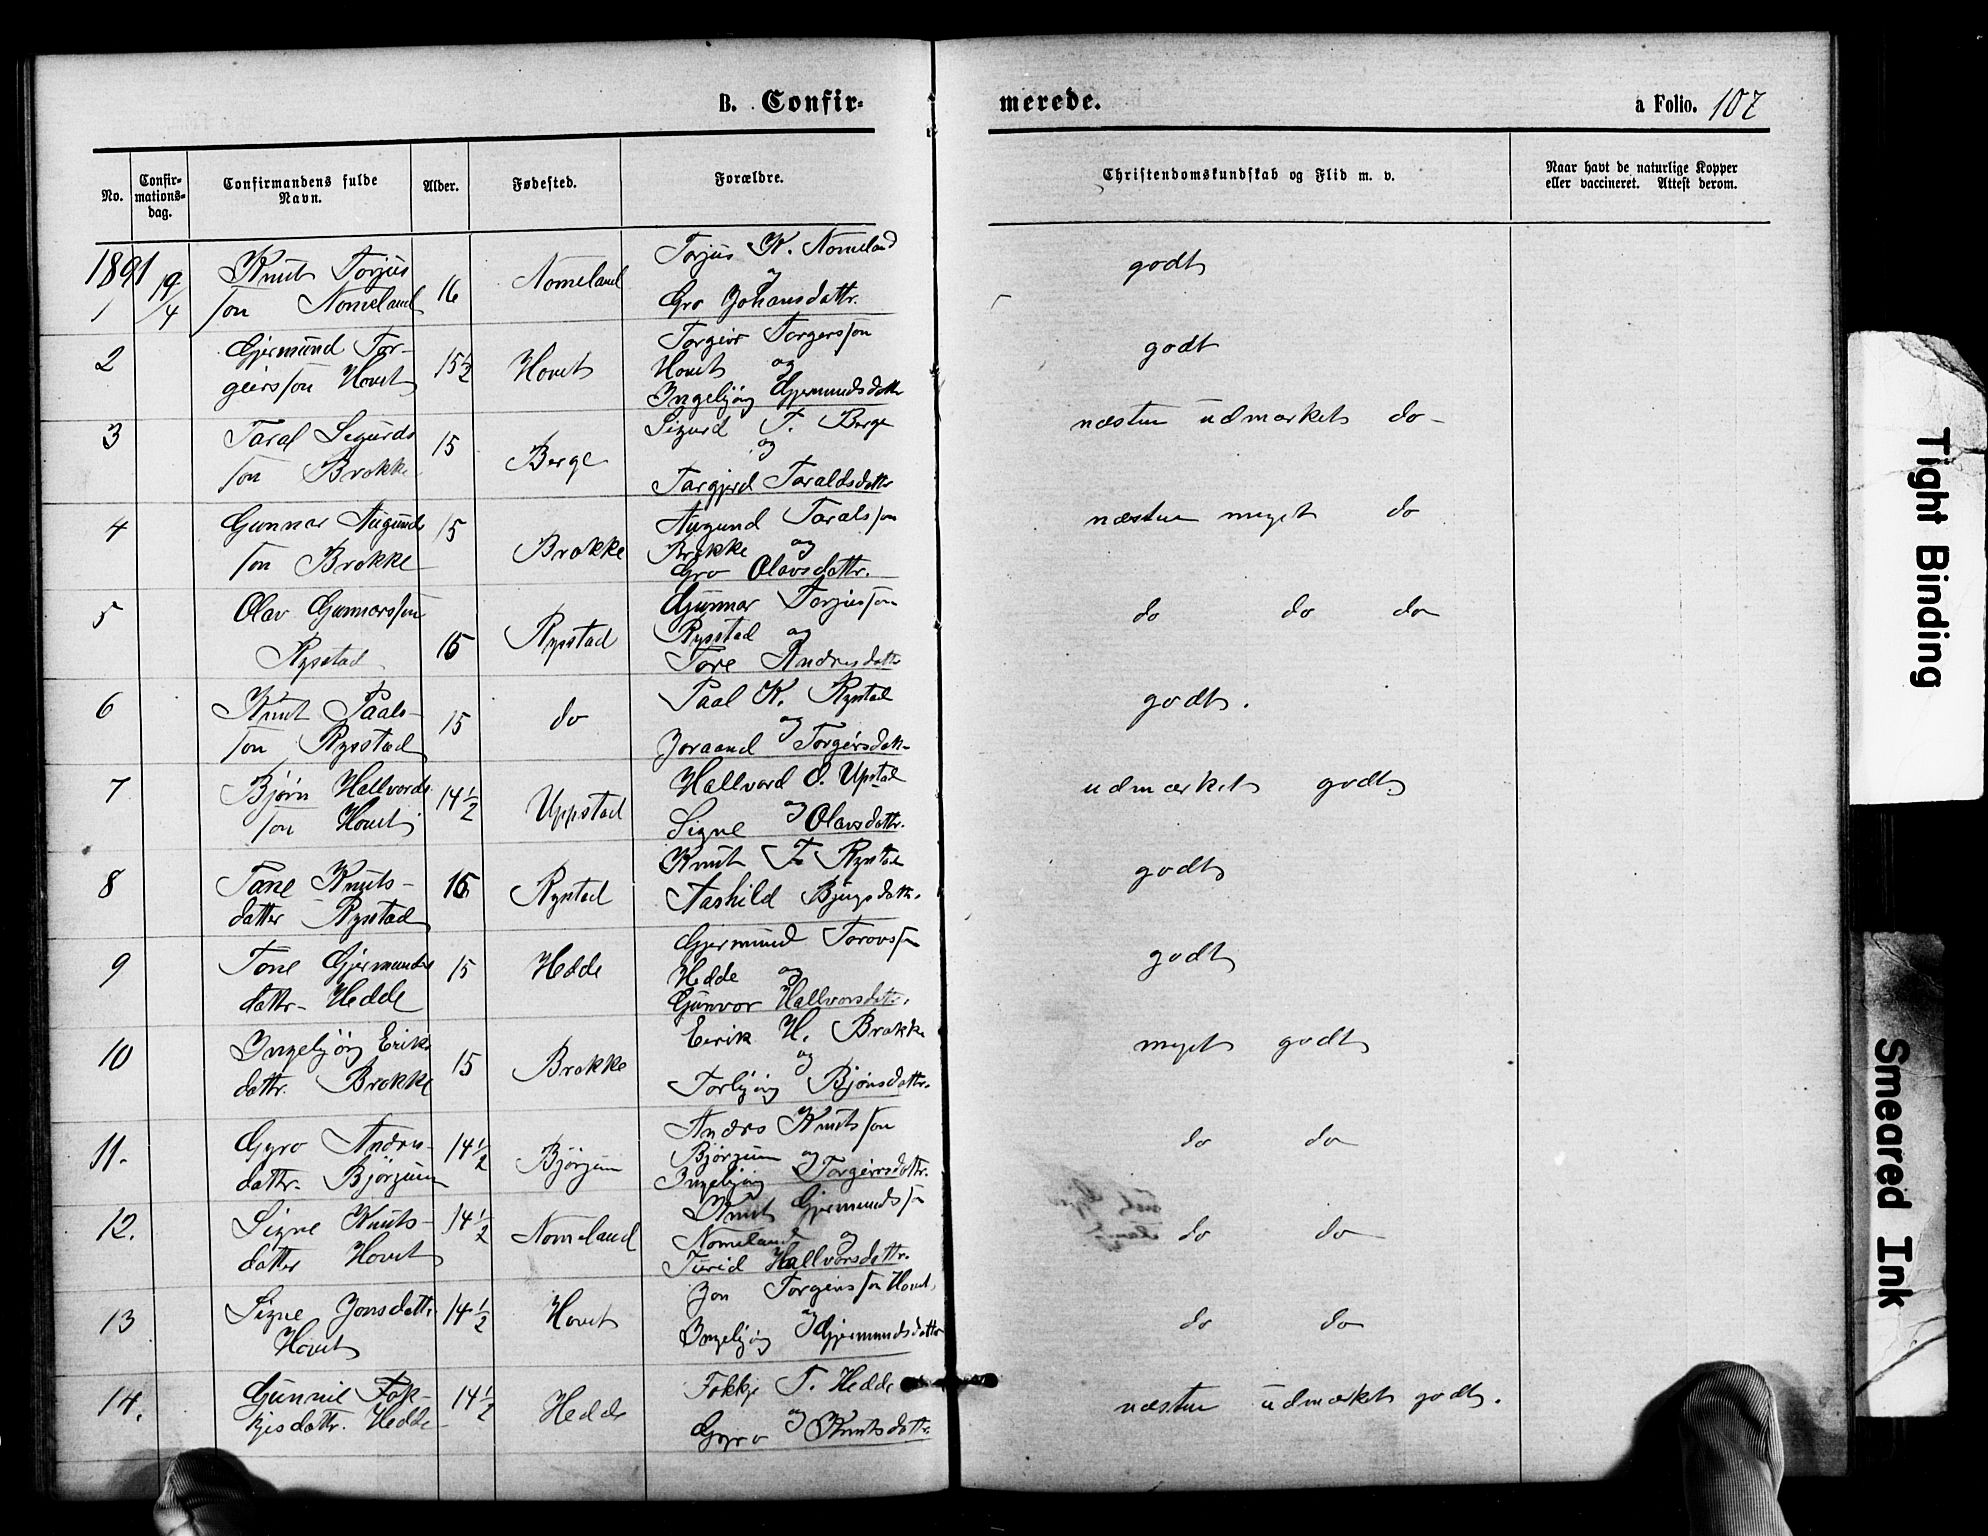 B. Confir-
merede.
a Folio. 107
No.
Confir-
mations-
dag.
Confirmandens fulde
Navn.
Alder.
Fødested.
Forældre.
Christendomskundskab og Flid m. v.
Naar havt de naturlige Kopper
eller vaccineret. Attest derom.
1891
1
19/4
Knut Torjus
son Nomeland
16
Nomeland
Torjus K. Nomeland
og
Gro Johansdattr.
godt
2
Gjermund Tor-
geirsson Hovet
15½
Hovet
Torgeir Torgersson
Hovet og
Ingebjørg Gjermundsdattr
godt
3
Taral Sigurds
son Brokke
15
Berge
Sigurd T. Berge
og
Targjerd Taraldsdattr
næsten udmærket do
4
Gunnar Augunds
son Brokke
15
Brokke
Augund Taralsson
Brokke og
Gro Olavsdattr.
næsten meget do
5
Olav Gunnarsson
Rysstad
15
Rysstad
Gunnar Torjusson
Rysstad og
Tore Andresdattr
do do do
6
Knut Paals-
son Rysstad
15
do
Paal K. Rystad
og
Joraand Torgeirsdatr
godt.
7
Bjørn Hallvords
son Hovet
14½
Uppstad
Hallvord O. Upstad
og
Signe Olavsdattr.
udmærket godt
8
Tone Knuts-
datter Rysstad
15
Rystad
Knut T. Rystad
Aashild Bjugsdattr.
godt
9
Tone Gjermunds
dattr- Hedde
15
Hedde
Gjermund Torovsson
Hedde og
Gunvor Hallvorsdatr.
godt
10
Ingebjørg Eriks
dattr. Brokke
15
Brokke
Eerik H. Brokke
og
Torbjørg Bjønsdattr.
meget godt
11.
Gyro Andres-
dattr. Bjørgum
14½
Bjørgum
Andrs Knutsson
Bjørgum og
Ingebjørg Torgeirsdattr.
do do
12.
Signe Knuts-
datter Hovet
14½
Nomeland
Knut Gjermundsson
Nomeland og
Turid Hallvorsdattr.
do do
13
Signe Jonsdattr
Hovet
14½
Hovet
Jon Torgeirsson Hovet
og
Ingebjørg Gjermundsdattr
do do
14.
Gunnil Fok-
kjesdattr. Hedde
14½
Hedde
Fokkje T. Hedde
og
Gyro Knutsdattr.
næsten udmærket godt.
Tight Binding
Smeared Ink